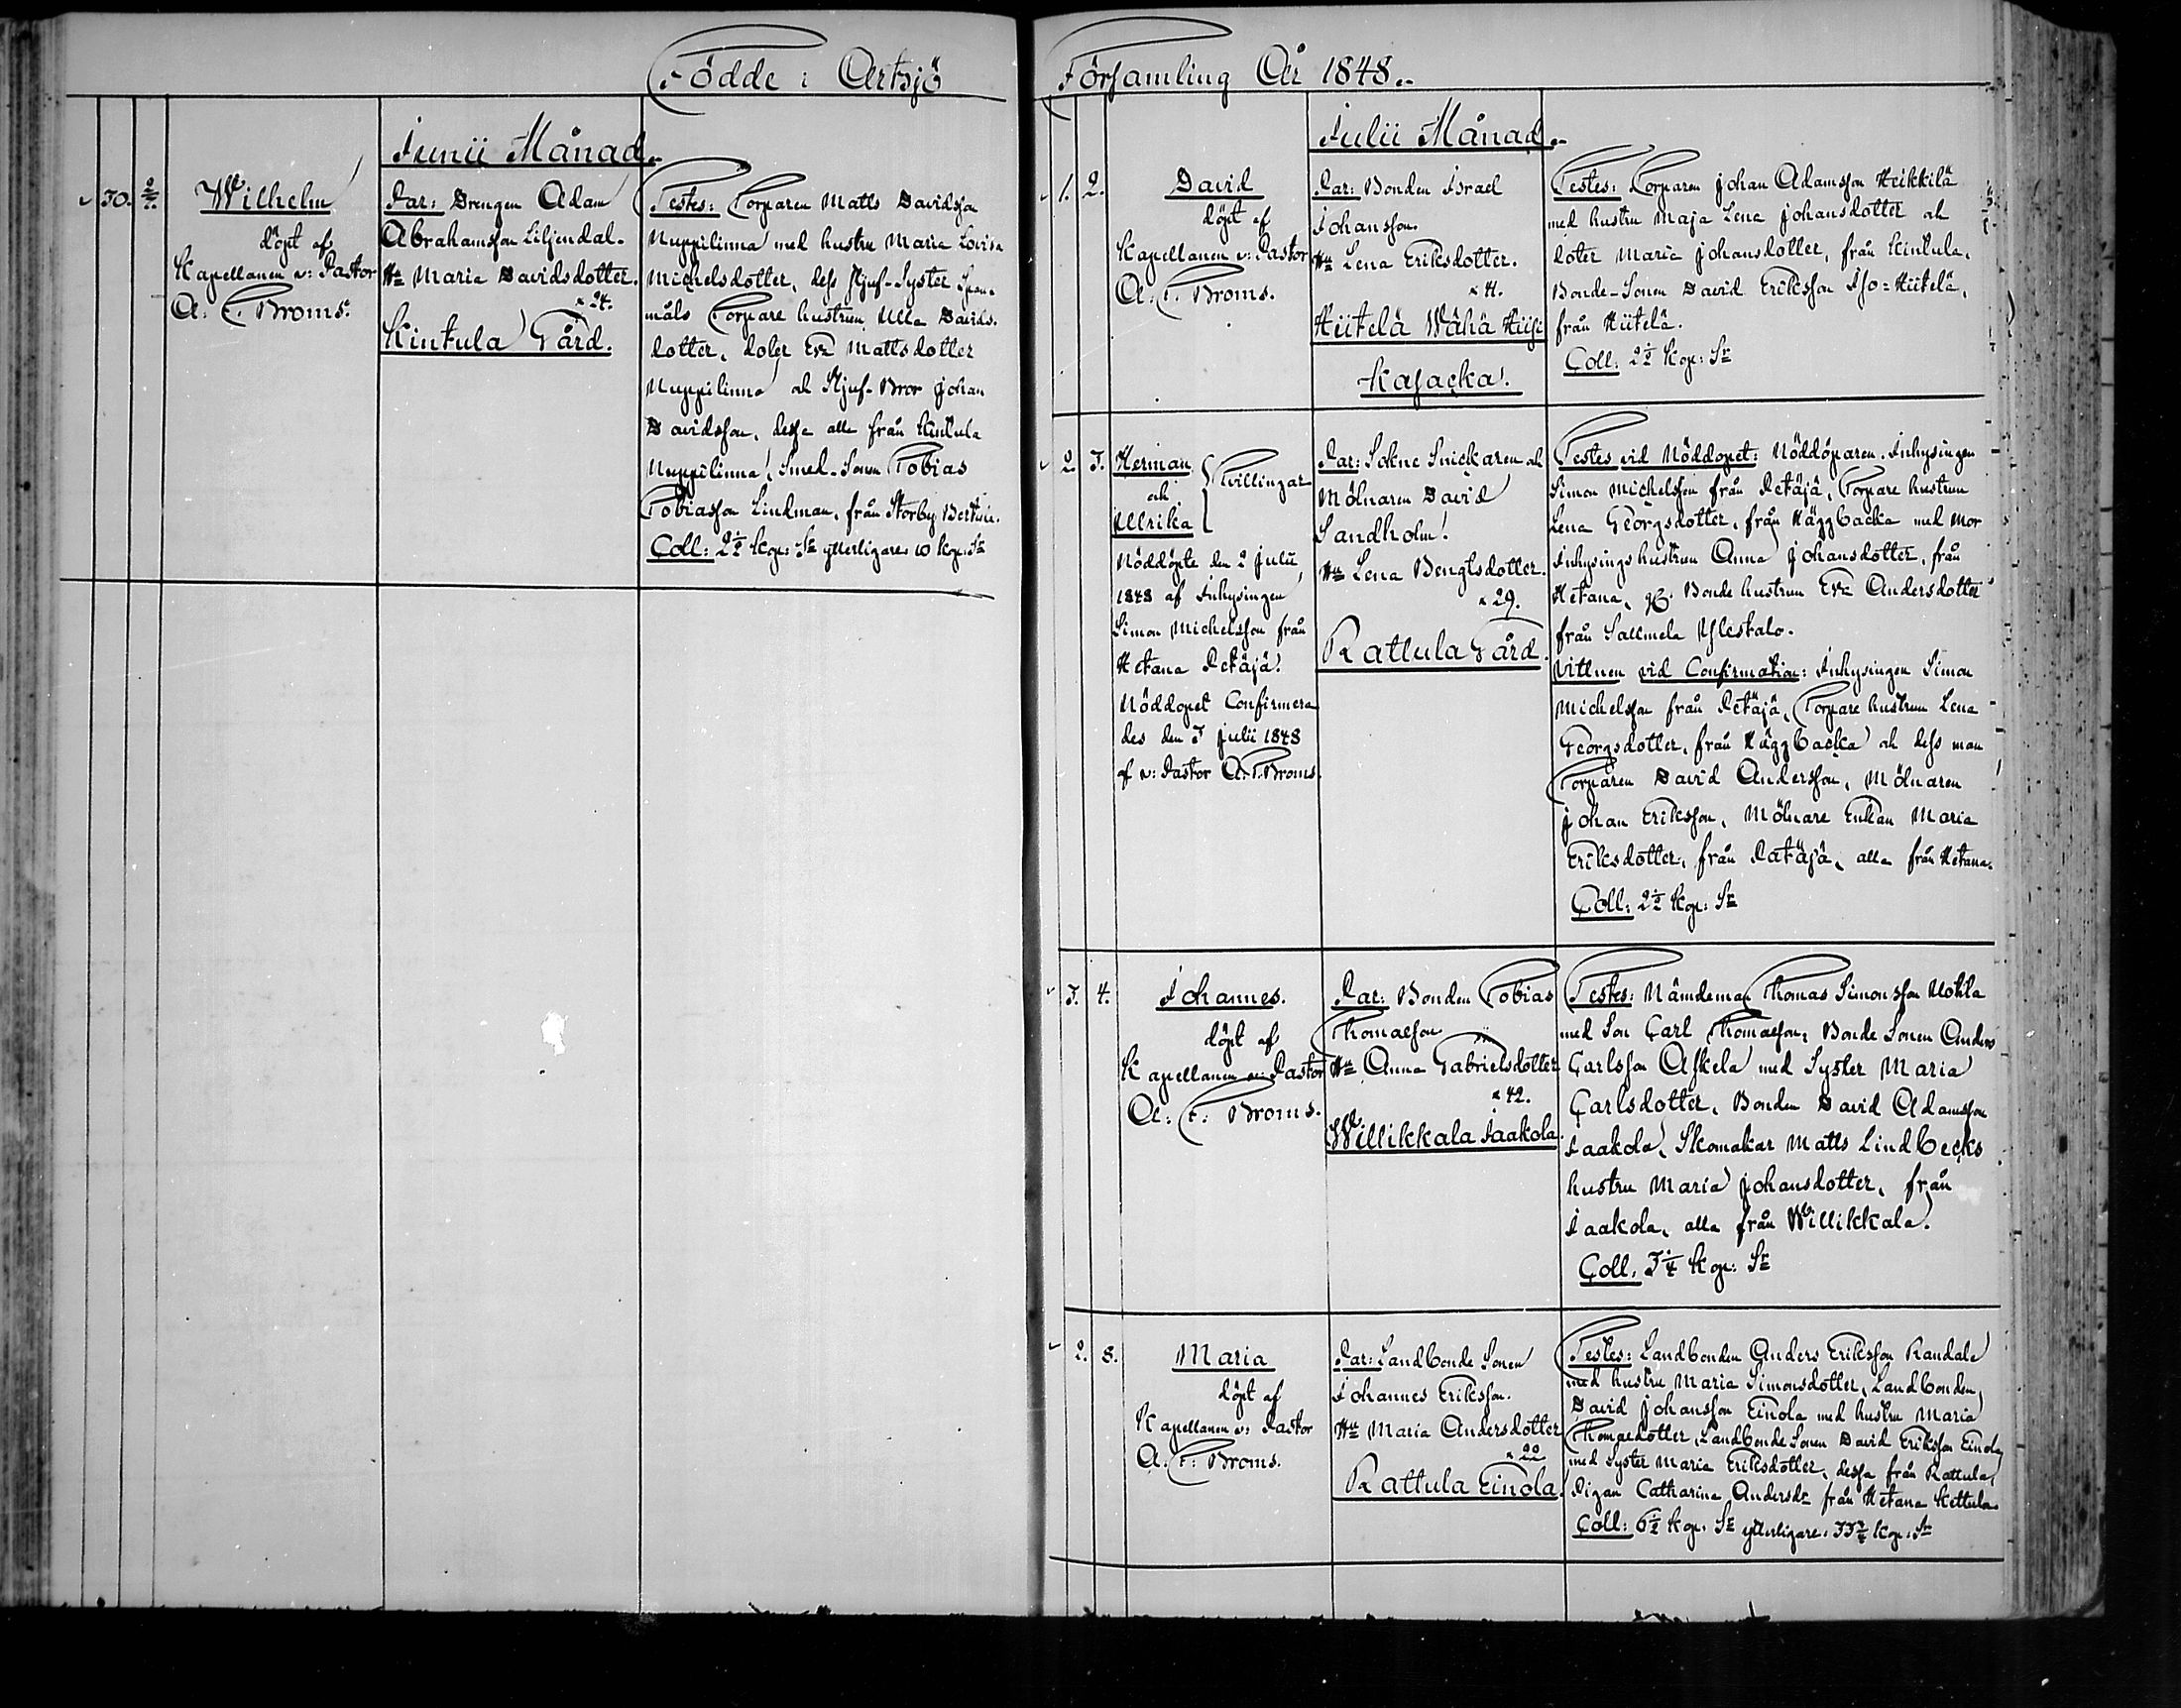 Födde i Artsjö
Junii Månad.
30. 2/7.
Wilhelm
döpt af
Kapellanen v: Pastor
A. F. Broms.
Far: Drengen Adam
Abrahamsson Liljendal.
Hu Maria Davidsdotter.
× 24.
Kintula Gård.
Testes: Torparen Matts Davidsson
Nuppilinna med hustru Maria Lovisa
Michelsdotter, dess Stjuf-Syster
måls Torpare hustrun Ulla Davids-
dotter, doter Eva Mattsdotter
Nuppilinna och Stjuf-Bror Johan
Davidsson, desse alla från Kintula
Nuppilinna, Smed-Sonen Tobias
Tobiasson Lindman, från Storby
Coll: 2½ Kop: Sr ytterligare 10 Kop: Sr
Församling År 1848.
Julii Månad.
1. 2.
David
döpt af
Kapellanen v: Pastor
A. F. Broms.
Far: Bonden Israel
Johansson.
Hu Lena Eriksdotter.
× 41.
Hiitelä Wähä Hiisi
Kasacka.
Testes: Torparen Johan Adamsson Heikkilä
med hustru Maja Lena Johansdotter och
doter Maria Johansdotter, från Kintula,
Bonde-Sonen David Eriksson Iso-Hiitelä,
från Hiitelä.
Coll: 2½ Kop: Sr
2. 3.
Herman
och
Ulrika
Tvillingar
Nöddöpte den 2 Julii
1848 af Inhysingen
Simon Michelsson från
Hetana Petäjä.
Nöddopet Confirmera
des den 3 Julii 1848
af v: Pastor A. F. Broms.
Far: Sokne Snickaren och
Mölnaren David
Sandholm.
Hu Lena Bengtsdotter.
× 29.
Rattula Gård.
Testes vid Nöddopet: Nöddöparen. Inhysingen
Simon Michelsson från Petäjä, Torpare hustrun
Lena Georgsdotter, från Häggbacka med Mor
Inhysings hustrun Anna Johansdotter, från
Hetana, Bonde hustrun Eva Andersdotter
från Sallmela Ylestalo.
Vittnen vid Confirmation: Inhysingen Simon
Michelsson från Petäjä, Torpare hustrun Lena
Georgsdotter, från Häggbacka och dess man
Torparen David Andersson, Mölnaren
Johan Eriksson, Mölnare Enkan Maria
Eriksdotter, från Petäjä, alla från Hetana.
Coll: 2½ Kop: Sr
3. 4.
Johannes.
döpt af
Kapellanen v: Pastor
A: F: Broms.
Far: Bonden Tobias
Thomasson
Hu Anna Gabrielsdotter
× 42.
Willikkala Jaakola.
Testes: Nämdeman Thomas Simonsson Uotila
med Son Carl Thomasson, Bonde Sonen Anders
Carlsson Askela med Syster Maria
Carlsdotter, Bonden David Adamsson
Jaakola, Skomakar Matts Lindbecks
hustru Maria Johansdotter, från
Jaakola, alla från Willikkala.
Coll. 3¼ Kop: Sr
2. 8.
Maria
döpt af
Kapellanen v: Pastor
A. F: Broms.
Far: Landbonde Sonen
Johannes Eriksson.
Hu Maria Andersdotter
× 22
Rattula Einola.
Testes: Landbonden Anders Eriksson Randala
med hustru Maria Simonsdotter, Landbonden
David Johansson Einola med hustru Maria
Thomasdotter, Landbonde Sonen David Eriksson Einola
med Syster Maria Eriksdotter, dessa från Rattula,
Pigan Catharina Andersdr från Hetana Kettula.
Coll: 6½ Kop: Sr ytterligare: 33¾ Kop: Sr